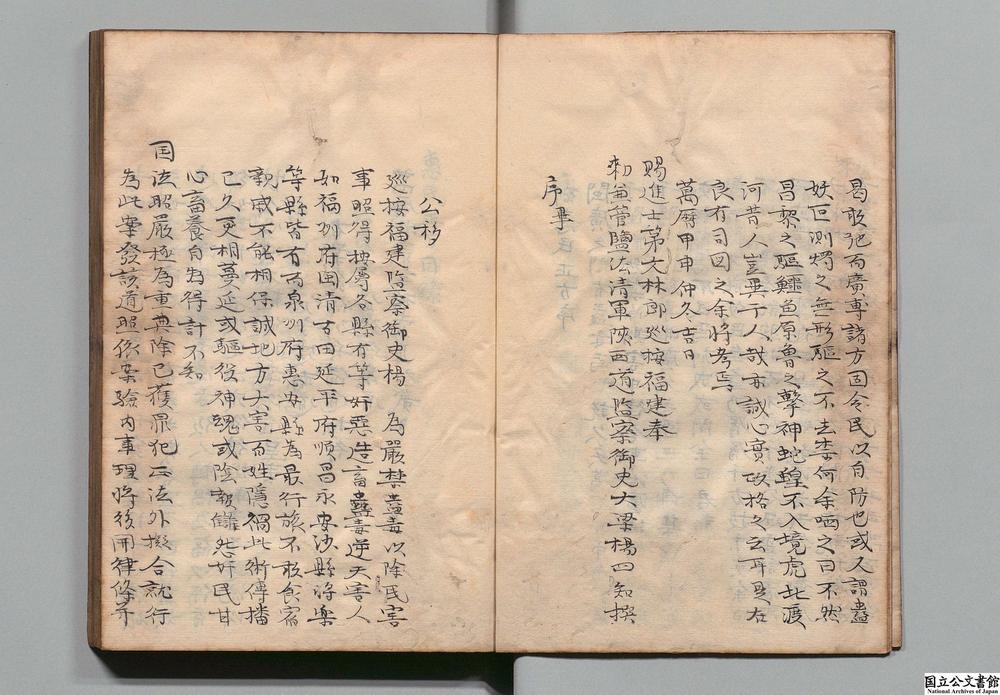 曷敢犯而廣專諸方固令民以自防也或又謂蠱
妖叵測燭之無形驅之不去柰何余哂之曰不然
昌黎之驅鱷魚原魯之擊神蛇蝗不入境虎北渡
河昔人豈異于人哉亦誠心實政格之云耳是在
良有司因之余將考焉
萬曆甲申仲冬吉日
賜進士第文林郎巡按福建奉
勑兼管鹽法清軍陝西道監察御史大梁楊四知撰
序畢
公移
巡按福建監察御史楊 為嚴禁蠱毒以除民害
事照得按屬各縣有等奸惡造畜蠱毒逆天害人
如福州府閩清古田延平府順昌永安沙縣將樂
等縣皆有而泉州府惠安縣為最行旅不敢食宿
親戚不能相保誠地方大害百姓隱禍此術傳播
已久更相蔓延或驅役神魂或陰報讎怨奸民甘
心畜養自為得計不知
国法昭嚴極為重典除已獲罪犯正法外擬合就行
為此案發該道照依案驗內事理將後開律條并
国立公文書館
National Archives of Japan